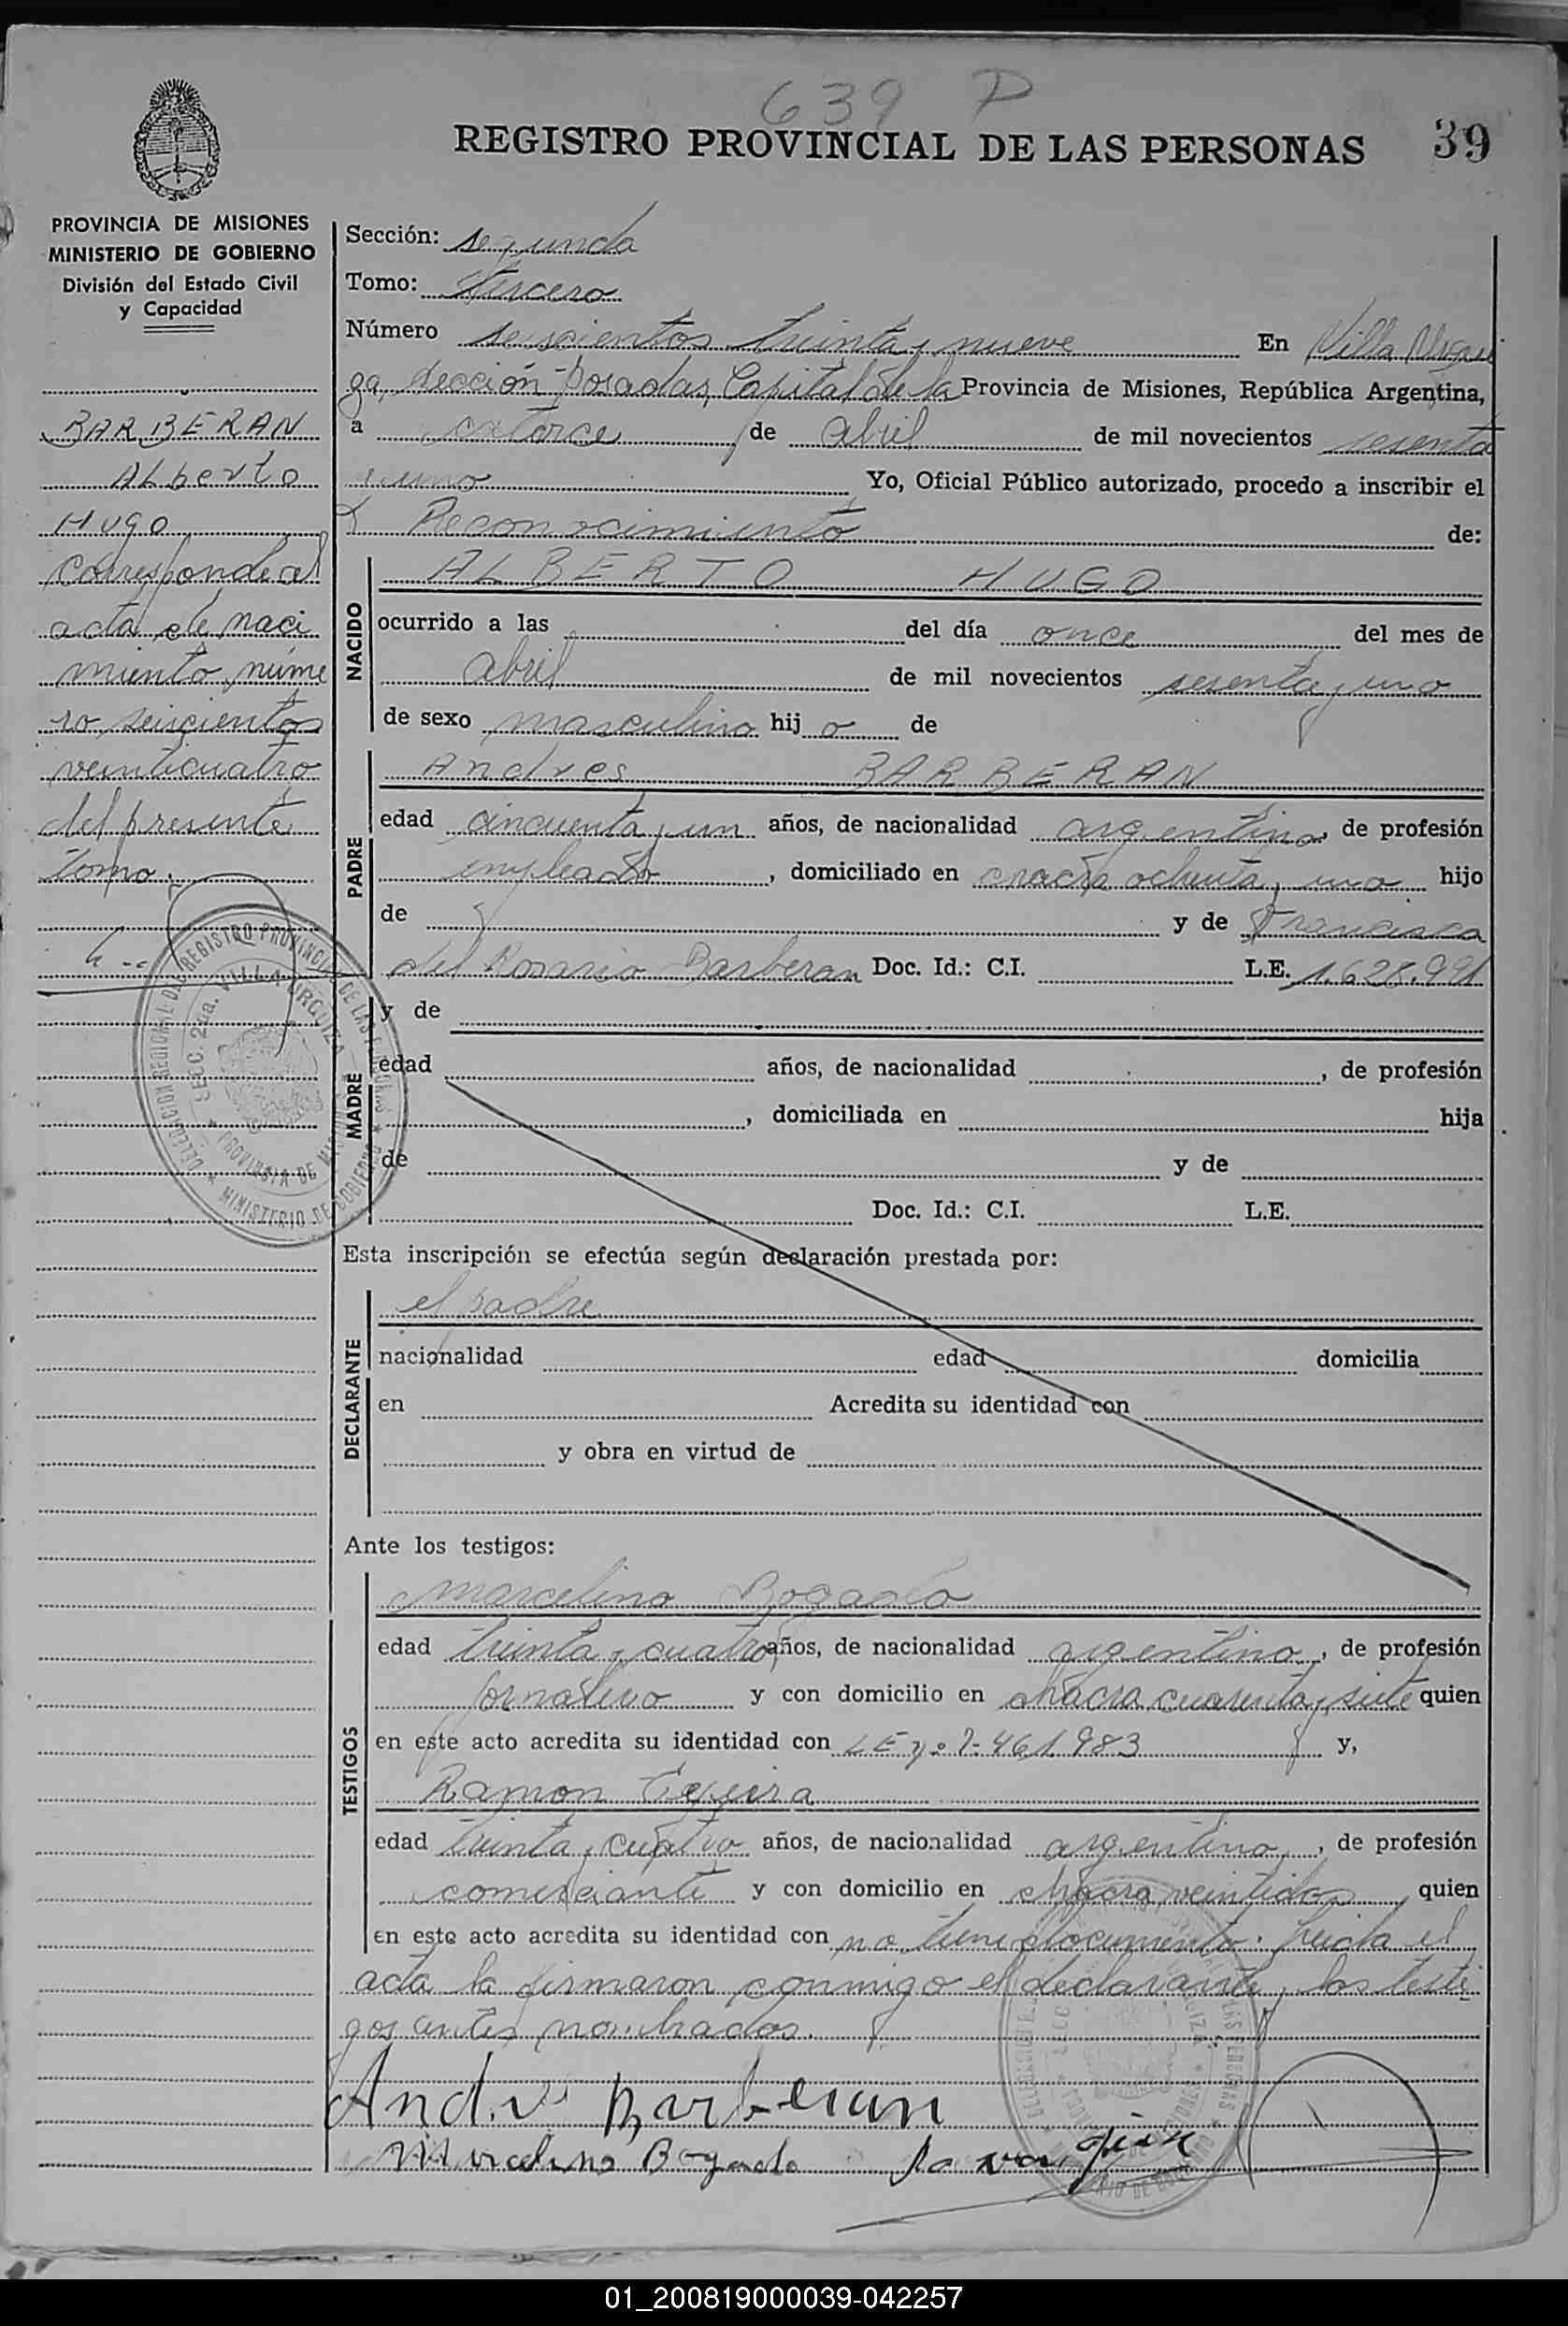 639 P
REGISTRO PROVINCIAL DE LAS PERSONAS 39
PROVINCIA DE MISIONES
MINISTERIO DE GOBIERNO
División del Estado Civil
y Capacidad
BARBERAN
ALberto
HUGO
Corresponde al
acta de naci
miento núme
ro seiscientos
veinticuatro
del presente
tomo.
DELEGACION REGIONAL DEL REGISTRO PROVINCIAL DE LAS PERSONAS
SECC. 2da. VILLA URQUIZA
PROVINCIA DE MISIONES
MINISTERIO DE GOBIERNO
Sección: segunda
Tomo: tercero
Número seiscientos treinta y nueve En Villa Urqui
za, sección Posadas, Capital de la Provincia de Misiones, República Argentina,
a catorce de abril de mil novecientos sesenta
y uno Yo, Oficial Público autorizado, procedo a inscribir el
Reconocimiento de:
NACIDO
ALBERTO HUGO
ocurrido a las del día once del mes de
abril de mil novecientos sesenta y uno
de sexo masculino hij o de
PADRE
Andres BARBERAN
edad cincuenta y un años, de nacionalidad argentino, de profesión
empleado, domiciliado en chacra ochenta y uno hijo
de y de Francisca
del Rosario Barberan Doc. Id.: C.I. L.E. 1.628.991
MADRE
y de
edad años, de nacionalidad , de profesión
, domiciliada en hija
de y de
Doc. Id.: C.I. L.E.
Esta inscripción se efectúa según declaración prestada por:
DECLARANTE
el padre
nacionalidad edad domicilia
en Acredita su identidad con
y obra en virtud de
Ante los testigos:
TESTIGOS
Marcelino Bogado
edad treinta y cuatro años, de nacionalidad argentino, de profesión
jornalero y con domicilio en chacra cuarenta y siete quien
en este acto acredita su identidad con LE nº 7.461.983 y,
Ramon
edad treinta y cuatro años, de nacionalidad argentino, de profesión
comerciante y con domicilio en chacra veintidos quien
en este acto acredita su identidad con no tiene documento. Leida el
acta la firmaron conmigo el declarante y los testi
gos antes nombrados.
Andres Barberan
Marcelino Bogado
01_200819000039-042257